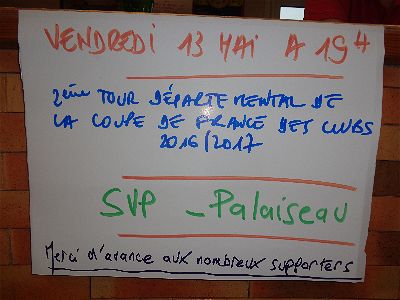 VENDREDI 13 MAI A 19H
2ème TOUR DÉPARTEMENTAL DE
LA COUPE DE FRANCE DES CLUBS
2016/2017
SVP - Palaiseau
Merci d'avance aux nombreux supporters